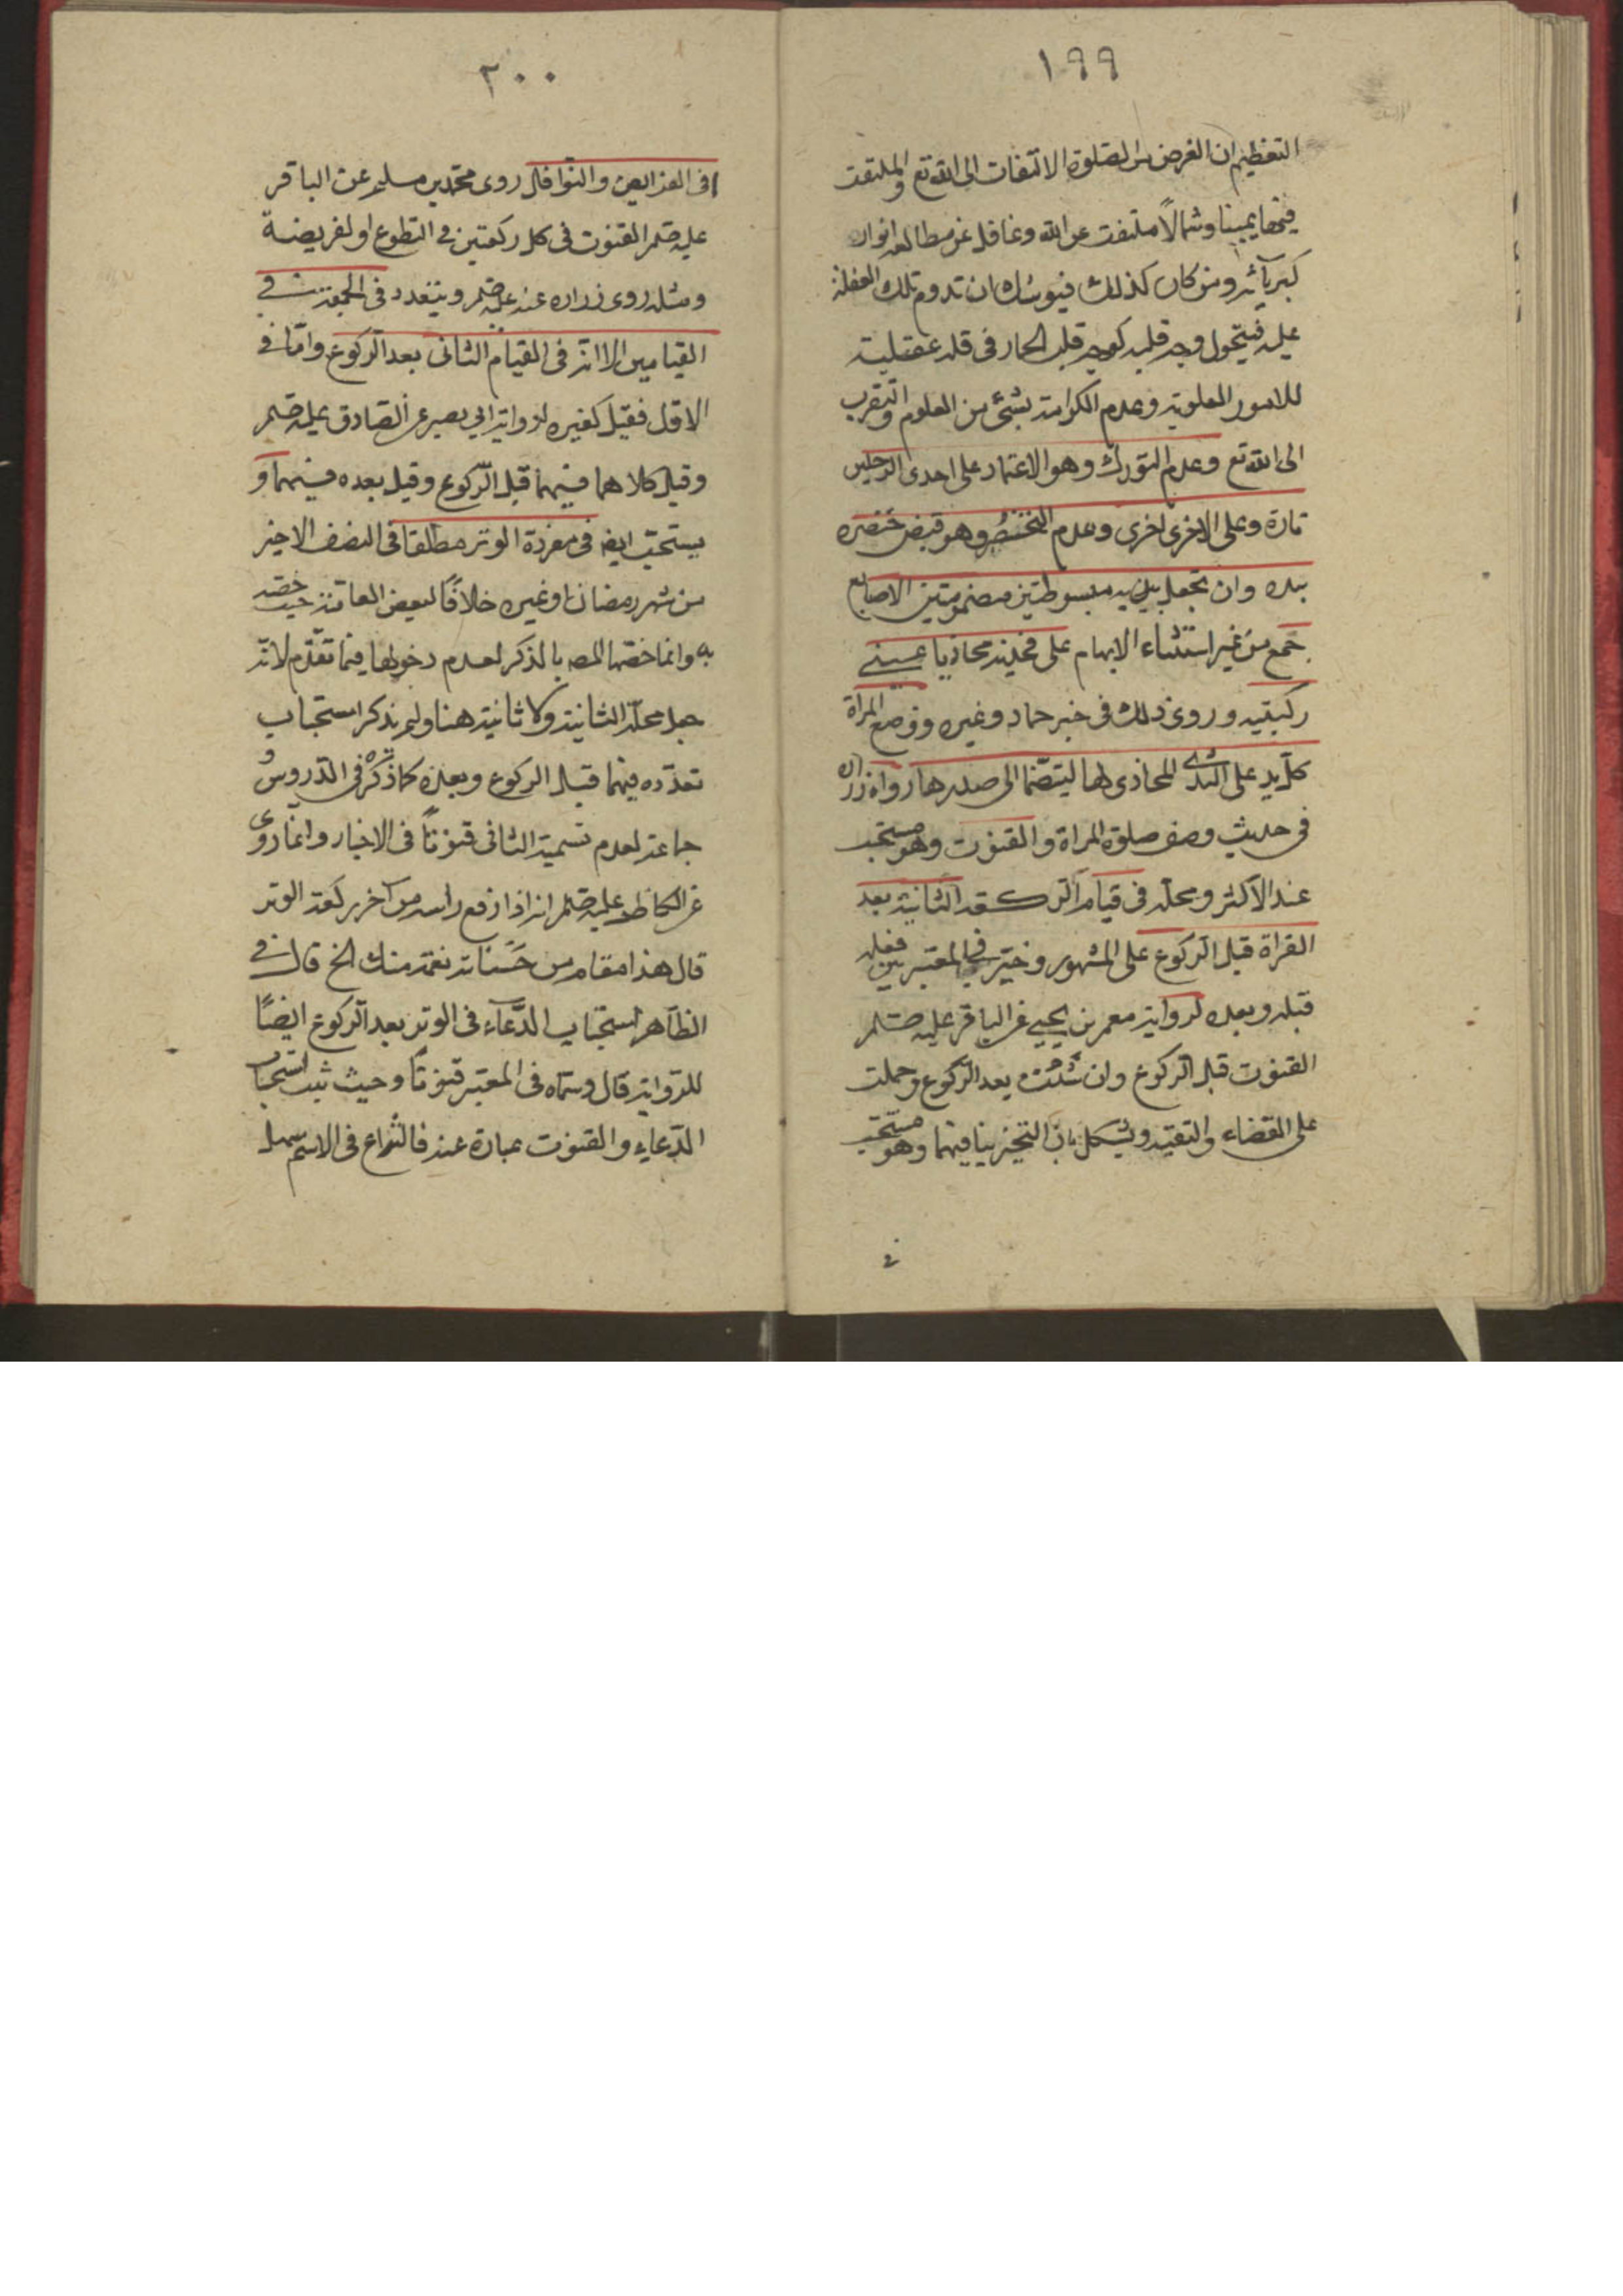 ١٩٩
التعظيم ان الغرض من الصلوة الالتفات الى الله تع والملتفت
فيها يمينا وشمالاً ملتفت عن الله وغافل عن مطالعه انوار
كبريآئه ومن كان كذلك فيوشك ان تدوم تلك الغفلة
عليه فيتحول وجه قلبه كوجه قلب الحمار في قلة عقليته
للامور العلويه وعدم اكرامه بشئ من العلوم والتقرب
الى الله تع وعدم التورك وهو الاعتماد على احدى الرجلين
تارة وعلى الاخرى اخرى وعدم التخنصُر وهو قبض خنصره
بيده وان تجعل يديه مبسوطتين مضمومتين الاصابع
جمع من غير استثناء الابهام على فخذيه محاذيا عيني
ركبتيه وروى ذلك في خبر حماد وغيره ووضع المراة
كل يد على الثدى المحاذى لها ليتضمّا الى صدرها رواه زراره
في حديث وصف صلوة المراة والقنوت وهو مستحب
عند الاكثر ومحله في قيام الركعه الثانيه بعد
القراة قبل الركوع على المشهور وخير في المعتبر بين فعله
قبله وبعده لروايه معمر بن يحيى عن الباقر عليه صلم
القنوت قبل الركوع وان شئت بعد الركوع وحملت
على القضاء والتقيه ويشكل بان التخير ينا فيهما وهو مستحب
في
٢٠٠
في الفرايض والنوافل روى محمد بن مسلم عن الباقر
عليه صلم القنوت في كل ركعتين في التطوع او لفريضة
ومثله روى زراره عنه عليه صلم ويتعدد في الجمعة في
القيامين الا انه في القيام الثاني بعد الركوع وامّا في
الاول فقيل كغيره لروايه ابي بصير عن الصادق عليه صلم
وقيل كلاهما فيهما قبل الركوع وقيل بعده فيهما و
يستحب ايض في مفردة الوتر مطلقا في النصف الاخير
من شهر رمضان اوغيره خلافًا لبعض العامه حيث خصه
به وانما خصها المص بالذكر لعدم دخولها فيما تقدم لانه
جعل محله الثانيه ولا ثانيه هنا ولم يذكر استحباب
تعدده فيهما قبل الركوع وبعده كما ذكره في الدروس و
جماعه لعدم تسميه الثاني قنوتاً في الاخبار وانما روى
عن الكاظم عليه صلم انه اذا رفع راسه من آخر ركعة الوتر
قال هذا مقام من حَسَناته نعمة منك الخ قال في
الظاهر استحباب الدّعاء في الوتر بعد الركوع ايضًا
للروايه قال وسمّاه في المعتبر قنوتاً وحيث ثبت استحباب
الدّعاء والقنوت عبارة عنه فالنزاع في الاسم سهل